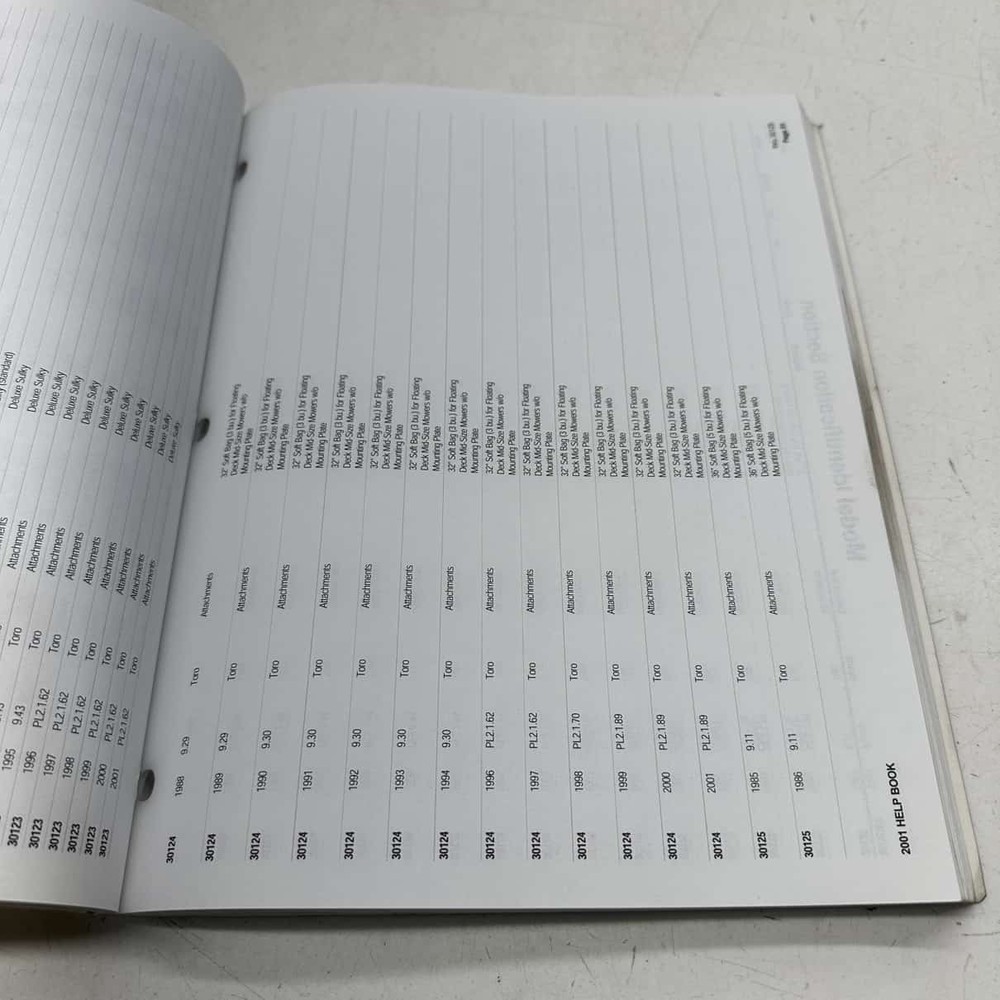 (standard)
Deluxe Sulky
Attachments Deluxe Sulky
Toro Attachments Deluxe Sulky
1995 9.43 Toro Attachments Deluxe Sulky
30123 1996 PL2.1.62 Toro Attachments Deluxe Sulky
30123 1997 PL2.1.62 Toro Attachments Deluxe Sulky
30123 1998 PL2.1.62 Toro Attachments Deluxe Sulky
30123 1999 PL2.1.62 Toro Attachments Deluxe Sulky
30123 2000 PL2.1.62 Toro Attachments Deluxe Sulky
30123 2001 PL2.1.62 Toro Attachments Deluxe Sulky
30124 1988 9.29 Toro Attachments 32" Soft Bag (3 bu) for Floating
Deck Mid-Size Mowers w/o
Mounting Plate
30124 1989 9.29 Toro Attachments 32" Soft Bag (3 bu) for Floating
Deck Mid-Size Mowers w/o
Mounting Plate
30124 1990 9.30 Toro Attachments 32" Soft Bag (3 bu) for Floating
Deck Mid-Size Mowers w/o
Mounting Plate
30124 1991 9.30 Toro Attachments 32" Soft Bag (3 bu) for Floating
Deck Mid-Size Mowers w/o
Mounting Plate
30124 1992 9.30 Toro Attachments 32" Soft Bag (3 bu) for Floating
Deck Mid-Size Mowers w/o
Mounting Plate
30124 1993 9.30 Toro Attachments 32" Soft Bag (3 bu) for Floating
Deck Mid-Size Mowers w/o
Mounting Plate
30124 1994 9.30 Toro Attachments 32" Soft Bag (3 bu) for Floating
Deck Mid-Size Mowers w/o
Mounting Plate
30124 1996 PL2.1.62 Toro Attachments 32" Soft Bag (3 bu) for Floating
Deck Mid-Size Mowers w/o
Mounting Plate
30124 1997 PL2.1.62 Toro Attachments 32" Soft Bag (3 bu) for Floating
Deck Mid-Size Mowers w/o
Mounting Plate
30124 1998 PL2.1.70 Toro Attachments 32" Soft Bag (3 bu) for Floating
Deck Mid-Size Mowers w/o
Mounting Plate
30124 1999 PL2.1.89 Toro Attachments 32" Soft Bag (3 bu) for Floating
Deck Mid-Size Mowers w/o
Mounting Plate
30124 2000 PL2.1.89 Toro Attachments 32" Soft Bag (3 bu) for Floating
Deck Mid-Size Mowers w/o
Mounting Plate
30124 2001 PL2.1.89 Toro Attachments 32" Soft Bag (3 bu) for Floating
Deck Mid-Size Mowers w/o
Mounting Plate
30125 1985 9.11 Toro Attachments 36" Soft Bag (5 bu) for Floating
Deck Mid-Size Mowers w/o
Mounting Plate
30125 1986 9.11 Toro Attachments 36" Soft Bag (5 bu) for Floating
Deck Mid-Size Mowers w/o
Mounting Plate
2001 HELP BOOK
Page